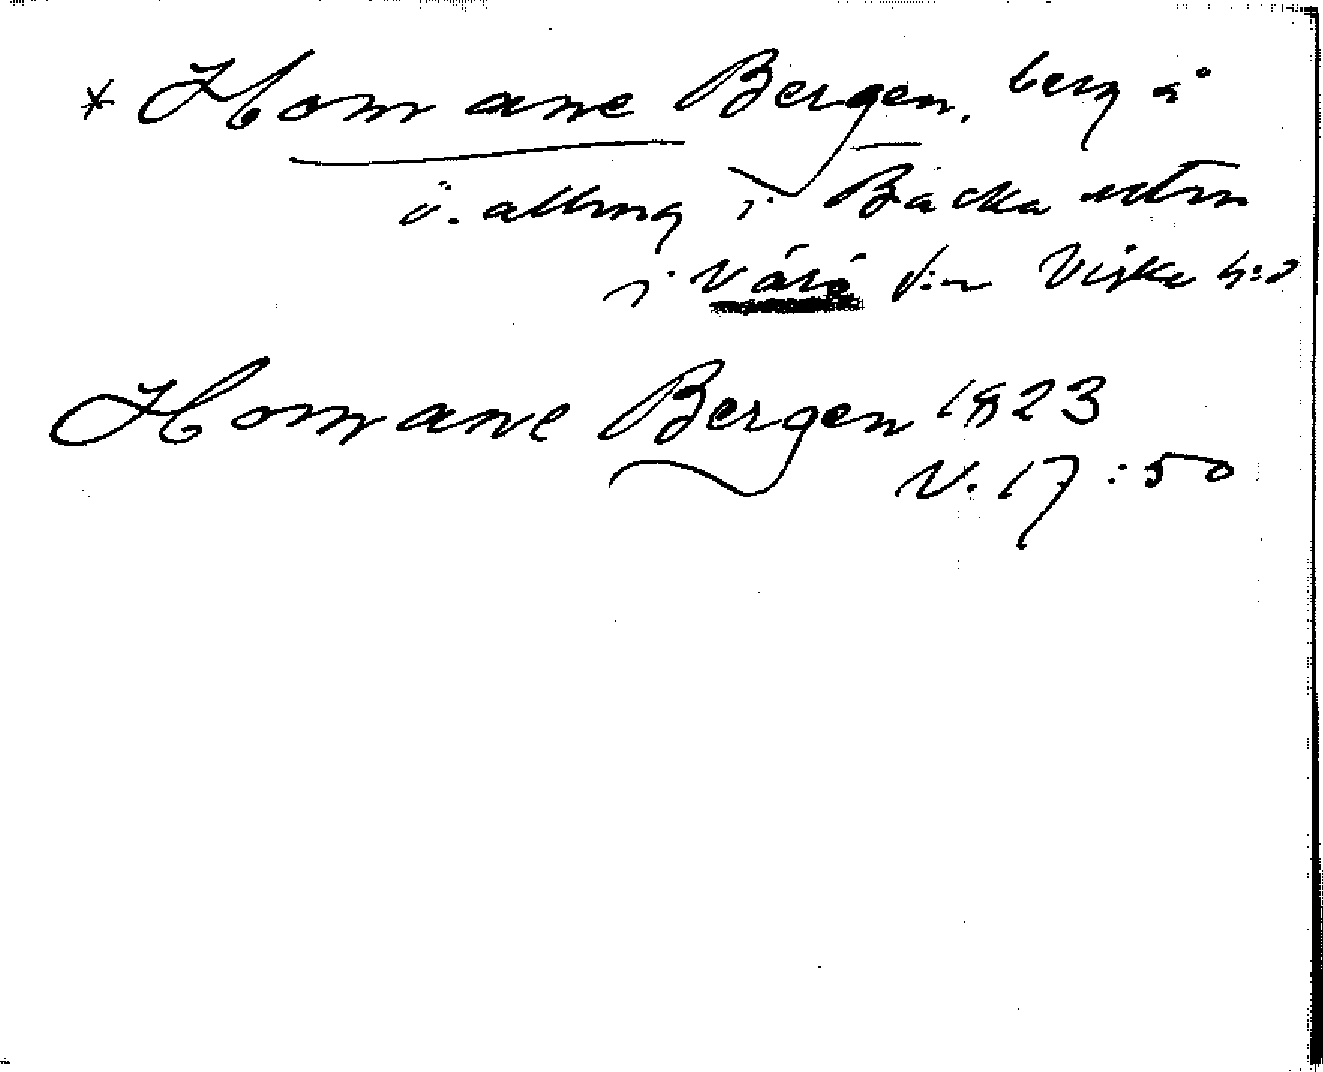 * Homane Bergen, berg å
ö. allmg i Backa utm
i Värö s:n Viske h:d
Homane Bergen 1823
V. 17:50